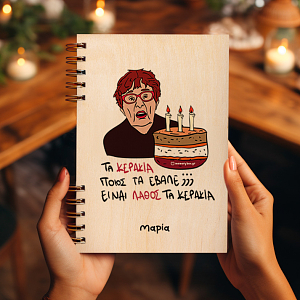 ΤΑ ΚΕΡΑΚΙΑ
ΠΟΙΟΣ ΤΑ ΕΒΑΛΕ ;;;
ΕΙΝΑΙ ΛΑΘΟΣ ΤΑ ΚΕΡΑΚΙΑ
Μαρία